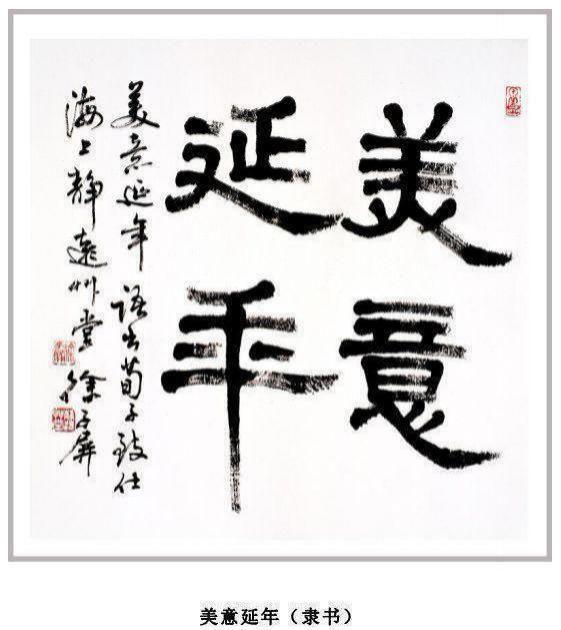 美意
延年
美意延年 语出荀子致仕
海上静遠艸堂 徐 屏
美意延年（隶书）